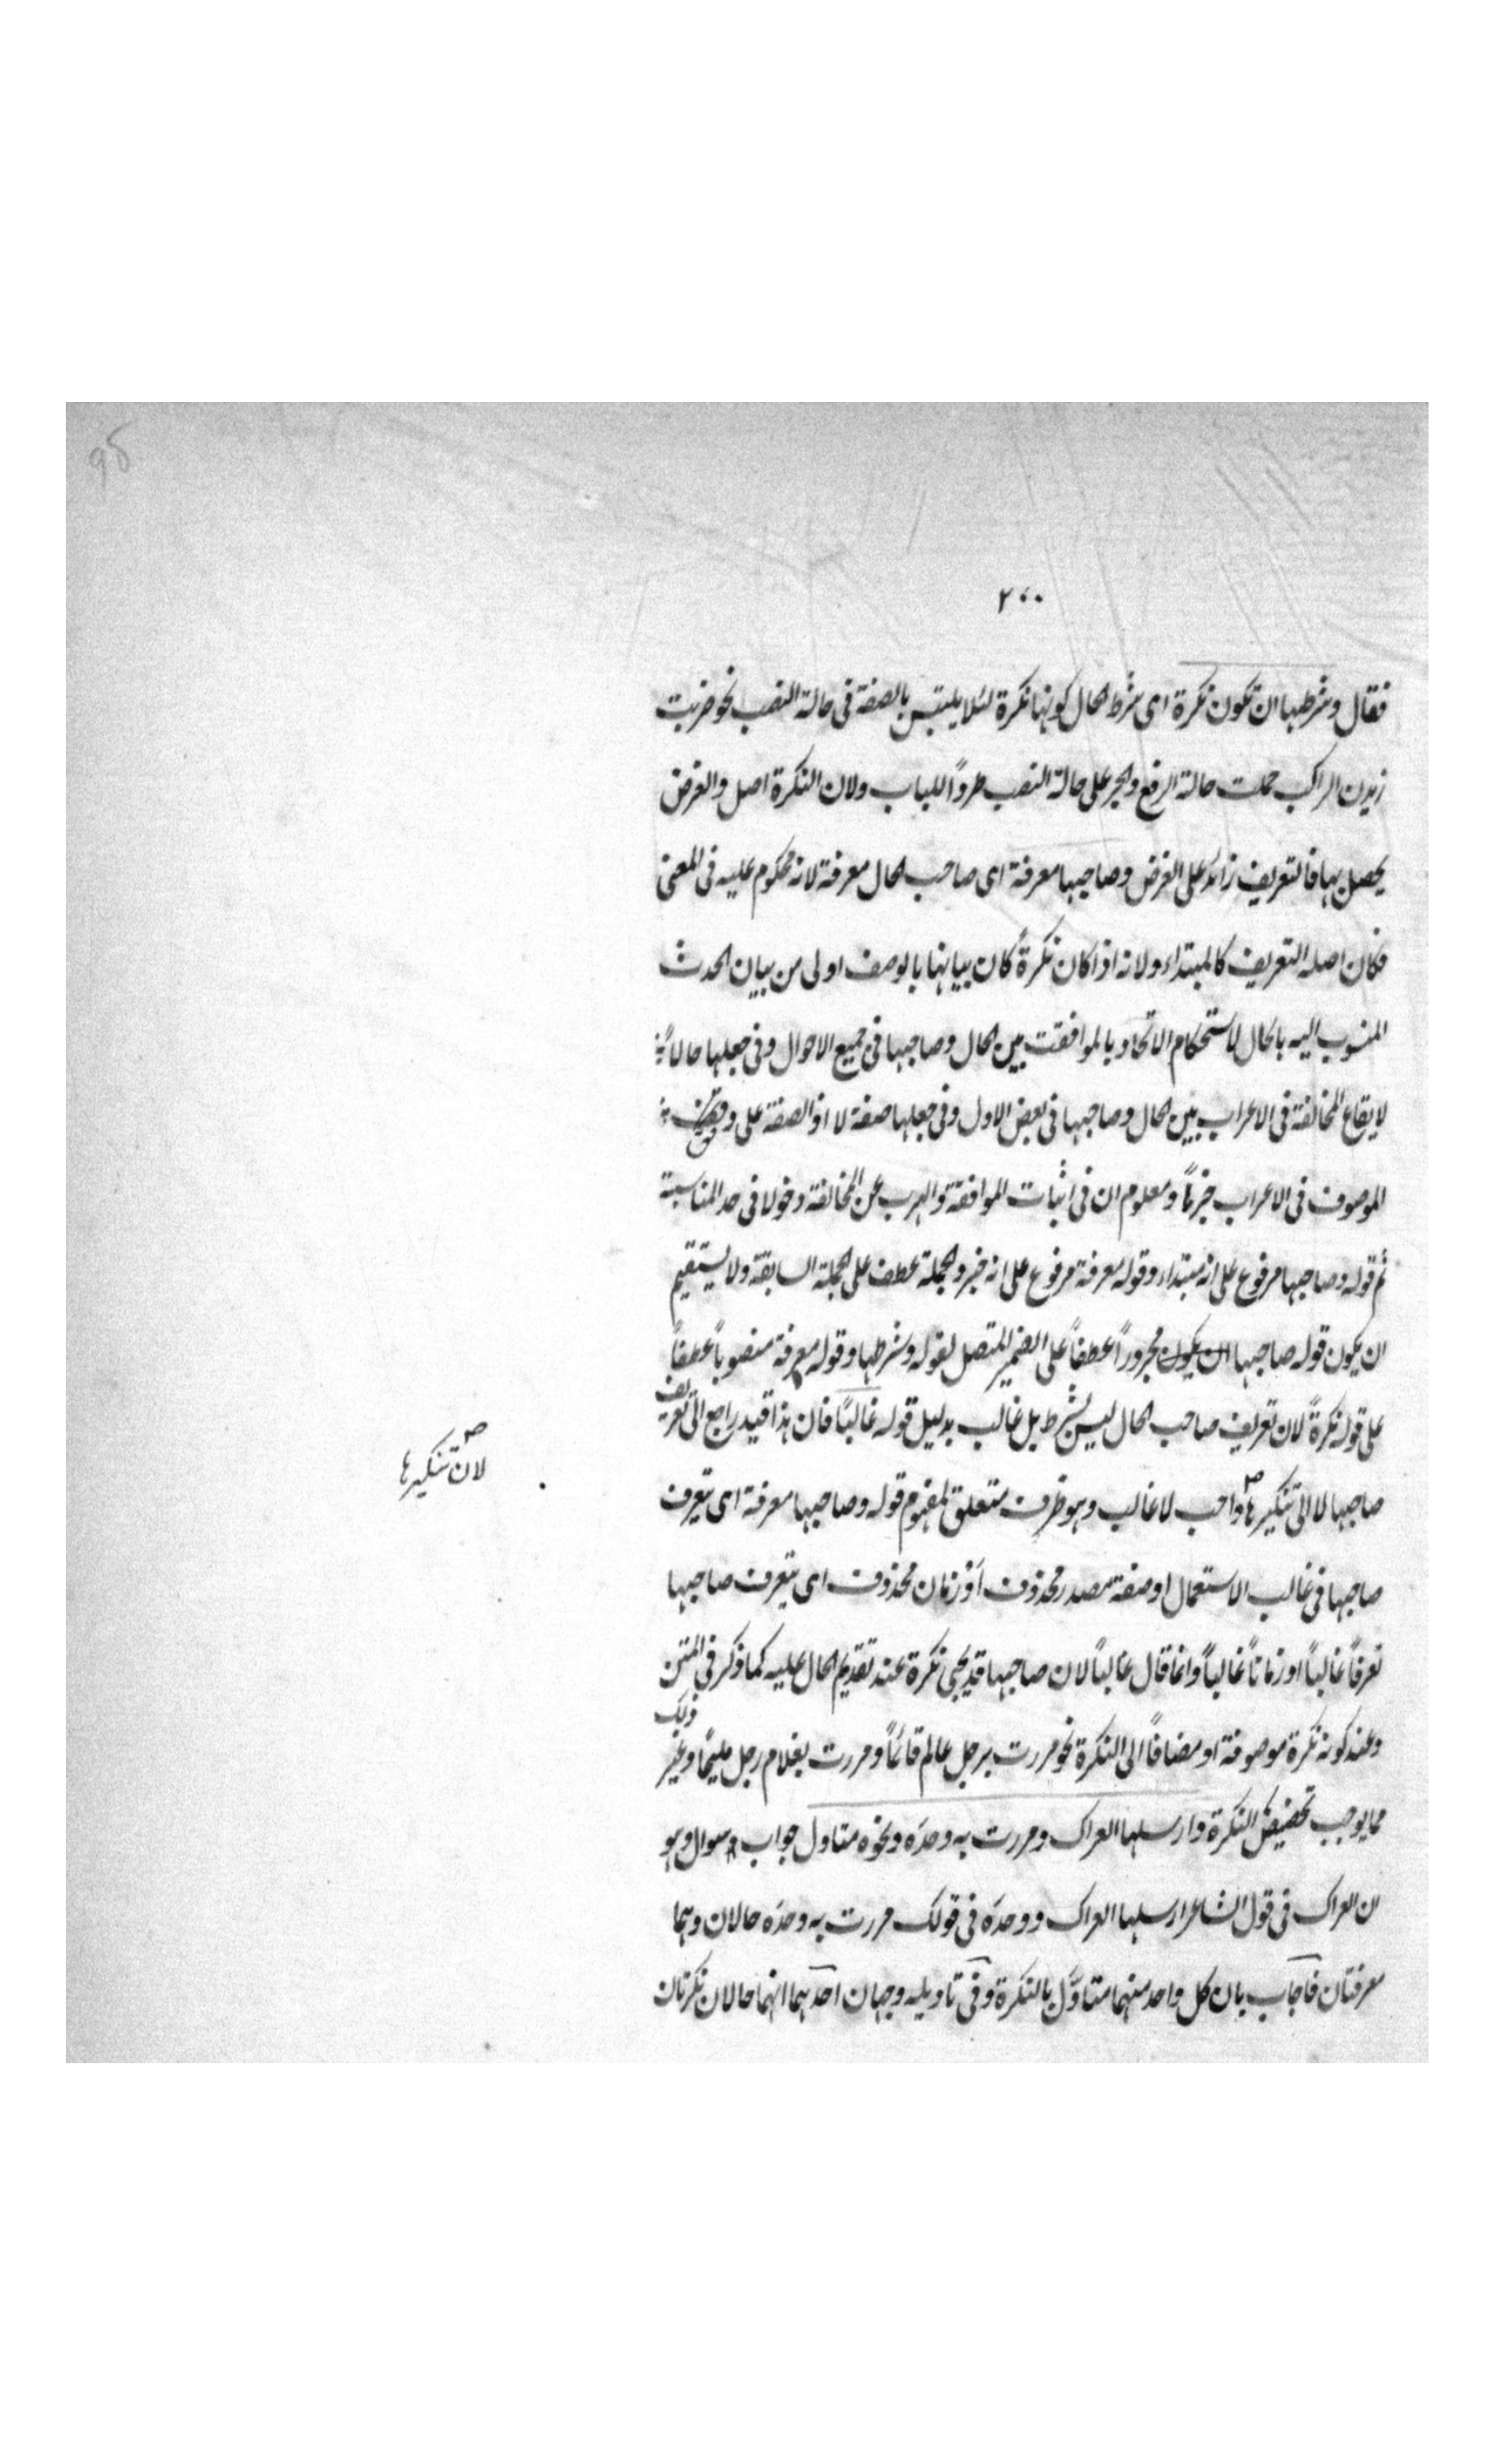 ٢٠٠
فقال وشرطها ان تكون نكرة اى شرط الحال كونها نكرة لئلا يلتبس بالصفة فى حالة النصب نحو ضربت
زيدن الراكب حملت حالة الرفع والجر على حالة النصب طرداً للباب ولان النكرة اصل والغرض
يحصل بها فالتعريف زائد على الغرض وصاحبها معرفة اى صاحب الحال معرفة لانه محكوم عليه فى المعنى
فكان اصله التعريف كالمبتداء ولانه اذا كان نكرةً كان بيانها بالوصف اولى من بيان الحدث
المنسوب اليه بالحال لاستحكام الاتحاد بالموافقت بين الحال وصاحبها فى جميع الاحوال وفى جعلها حالاً
لايقاع المخالفة فى الاعراب بين الحال وصاحبها فى بعض الاول وفى جعلها صفة لا اذ الصفة على وفق
الموصوف فى الاعراب جزماً ومعلوم ان فى اثبات الموافقة والهرب عن المخالفة دخولا فى حد المناسبة
ثم قوله وصاحبها مرفوع على انه مبتداء وقوله معرفة مرفوع على انه خبر والجملة عطف على الجملة السابقة ولا يستقيم
ان يكون قوله صاحبها ان يكون مجروراً عطفاً على الضمير المتصل لقوله وشرطها وقوله معرفة منصوباً عطفاً
على قوله نكرةً لان تعريف صاحب الحال ليس بشرط بل غالب بدليل قوله غالبًا فان هذا قيد راجع الى تعريف
صاحبها لا الى تنكيرها واجب لا غالب وهو ظرف متعلق لمفهوم قوله وصاحبها معرفة اى يتعرف
لان تنكيرها
صاحبها فى غالب الاستعمال او صفة مصدر محذوف او زمان محذوف اى يتعرف صاحبها
تعرفاً غالباً او زماناً غالباً وانما قال غالباً لان صاحبها قد يجى نكرة عند تقديم الحال عليه كما ذكر فى المتن
وعند كونه نكرة موصوفة او مضافاً الى النكرة نحو مررت برجل عالم قائماً ومررت بغلام رجل مليحًا وغير ذلك
مما يوجب تخصيص النكرة وارسلها العراك ومررت به وحدَه ونحوه متاول جواب سوال وهو
ان العراك فى قول الشاعر ارسلها العراك ووحدَه فى قولك مررت به وحدَه حالان وهما
معرفتان فاجاب بان كل واحد منهما متاوَّل بالنكرة وفى تاويله وجهان احدهما انهما حالان نكرتان